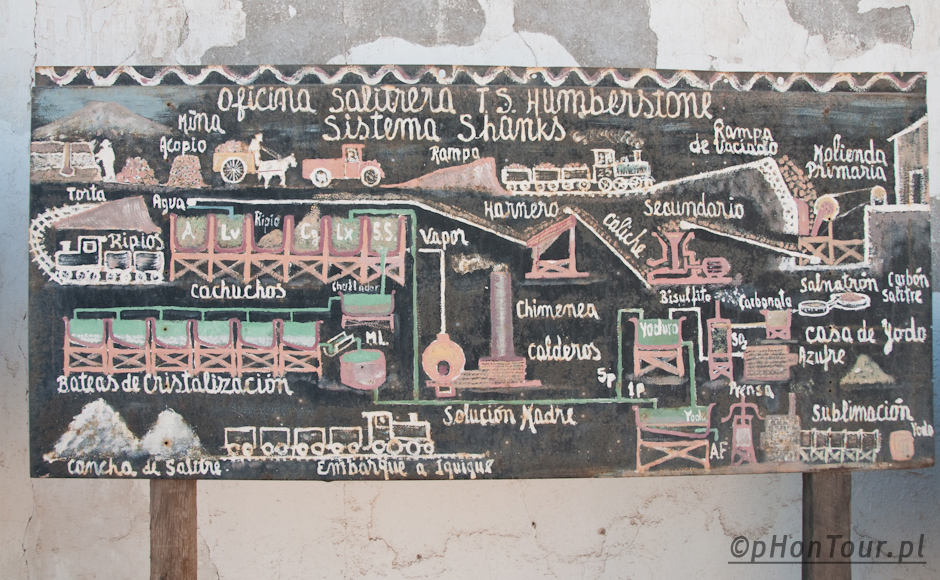 Oficina Salitrera T.S. Humberstone
Sistema Shanks
Mina
Acopio
Rampa
Rampa
de Vaciado
Molienda
Primaria
Torta
Agua
Ripio
Harnero
Caliche
Secundario
A
Lv
Lx
S.S.
Vapor
Ripios
Cachuchos
Chullador
Chimenea
Calderos
Bisulfito
Carbonato
Salnatrón
Carbón
Salitre
Yoduro
SO2
Casa de Yodo
Azufre
ML.
Bateas de Cristalización
SP
IP
Prensa
Solución Madre
Yodu
AF
Sublimación
Yodo
Cancha de Salitre
Embarque a Iquique
©pHonTour.pl